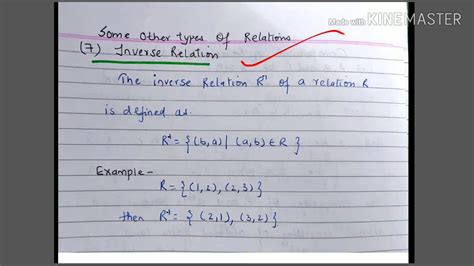 Made with KINEMASTER
Some Other types Of Relations
(7) Inverse Relation
The inverse Relation R⁻¹ of a relation R
is defined as.
R⁻¹ = { (b,a) | (a,b) ∈ R }
Example -
R = { (1,2), (2,3) }
then R⁻¹ = { (2,1), (3,2) }.